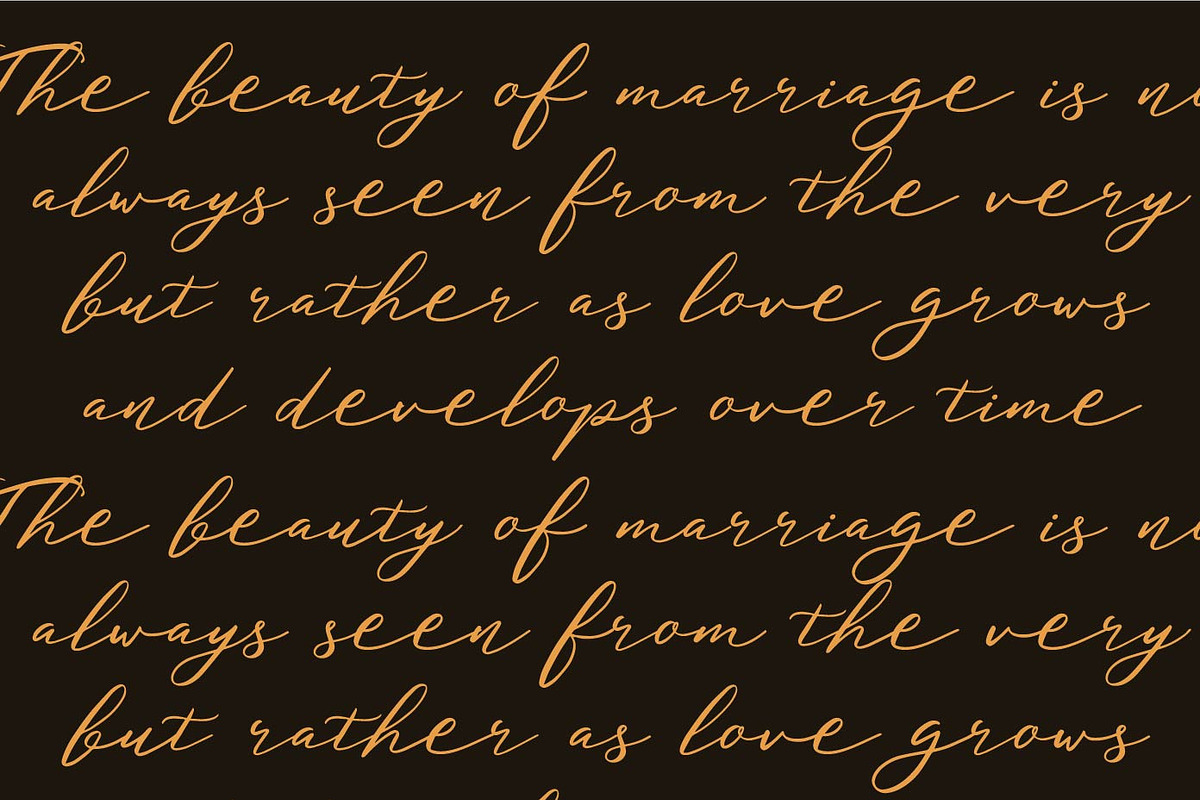 The beauty of marriage is
always seen from the very
but rather as love grows
and develops over time
The beauty of marriage is
always seen from the very
but rather as love grows